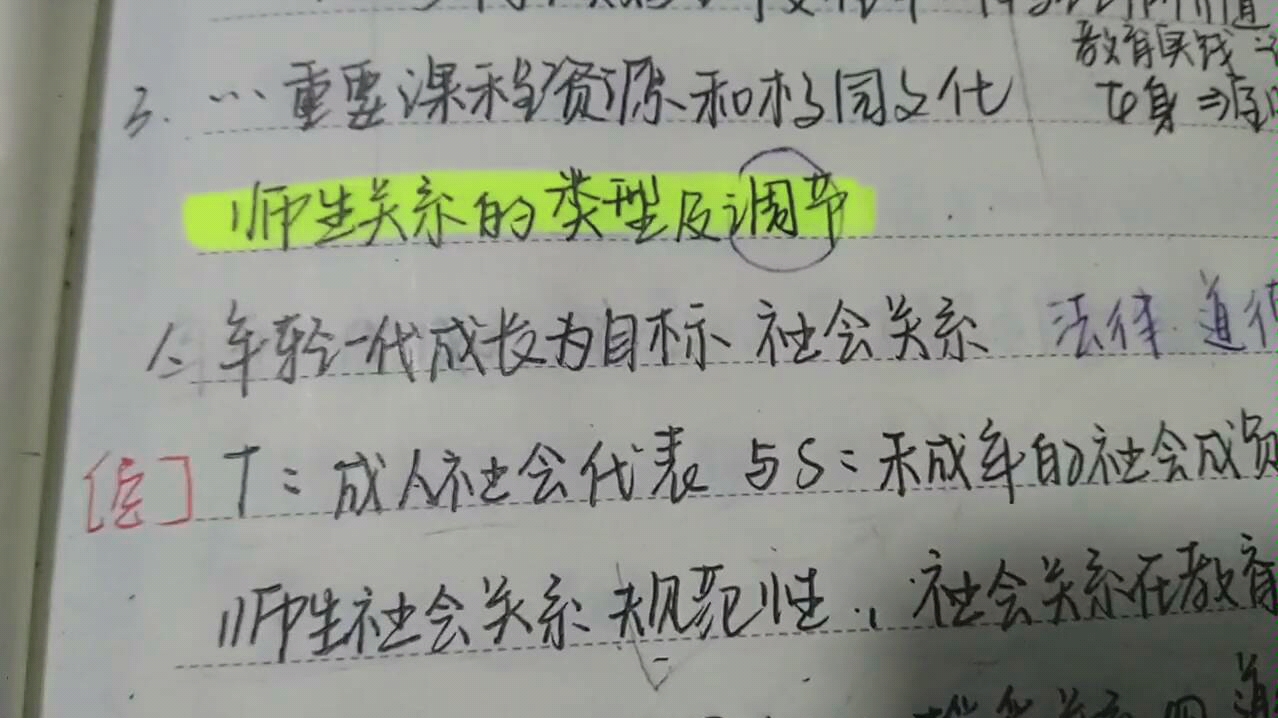 教育实践
3. … 重要课程资源和校园文化
自身 ⇒
师生关系的类型及调节
人: 年轻一代成长为目标 社会关系 法律 道德
T: 成人社会代表 与S: 未成年的社会成员
师生社会关系 规范性., 社会关系在教育
关系